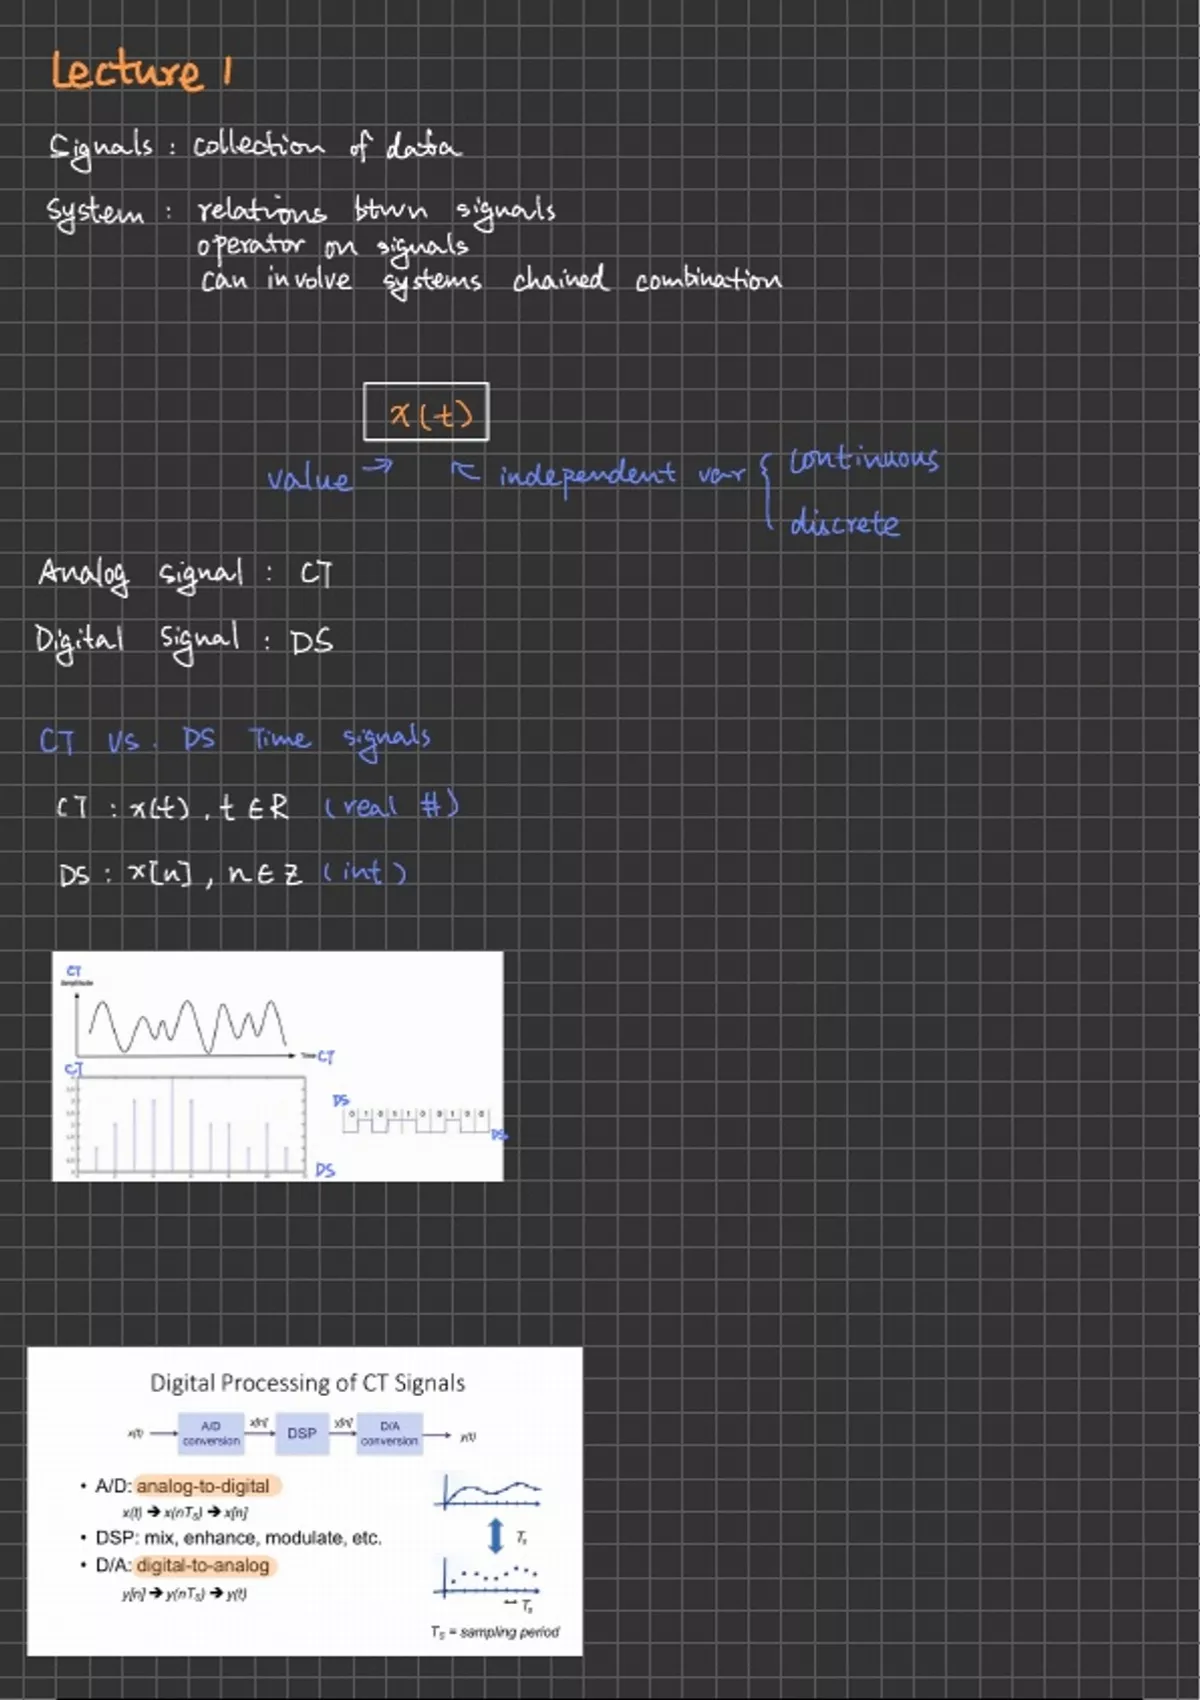 Lecture 1
Signals : collection of data
System : relations btwn signals
operator on signals
can involve systems chained combination
x(t)
value → ↖ independent var { continuous
discrete
Analog signal : CT
Digital Signal : DS
CT Vs. DS Time signals
CT : x(t) , t ∈ R (real #)
DS : x[n] , n ∈ Z (int)
CT
Amplitude
Time CT
CT
DS
0 1 0 1 1 0 0 1 0 0
DS
DS
Digital Processing of CT Signals
x(t) A/D conversion x[n] DSP y[n] D/A conversion y(t)
• A/D: analog-to-digital
x(t) → x(nTS) → x[n]
• DSP: mix, enhance, modulate, etc.
• D/A: digital-to-analog
y[n] → y(nTS) → y(t)
Ts
Ts
TS = sampling period